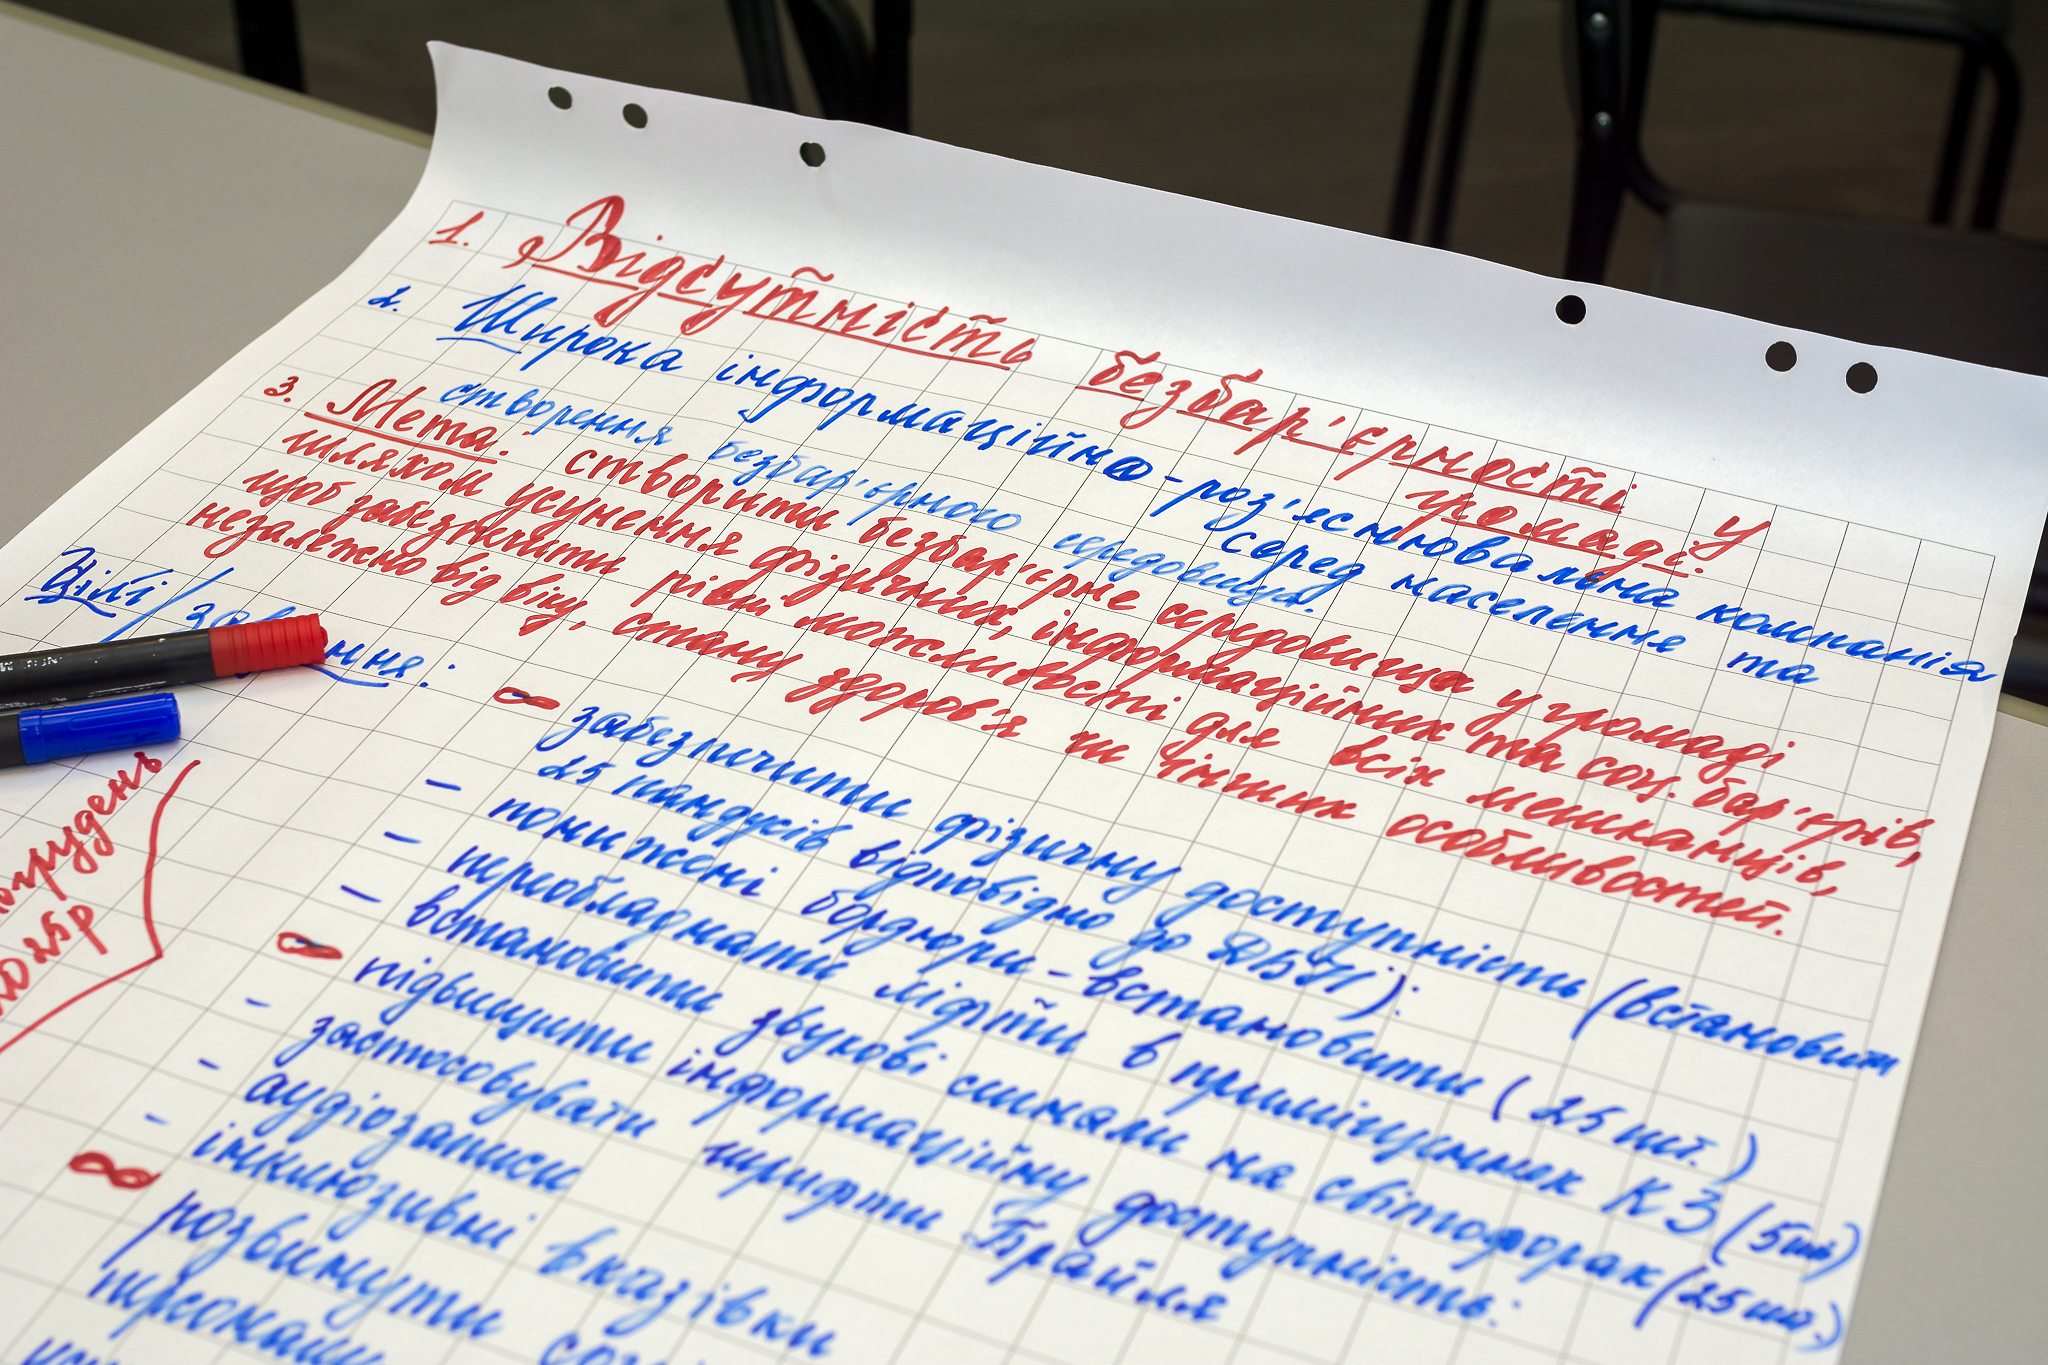 1. „Відсутність безбар'єрності у
громаді.
2. Широка інформаційно-роз'яснювальна компанія
серед населення та
створення безбар'єрного середовища.
3. Мета: створити безбар'єрне середовище у громаді
шляхом усунення фізичних, інформаційних та соц. бар'єрів,
щоб забезпечити рівні можливості для всіх мешканців,
незалежно від віку, стану здоров'я чи інших особливостей.
Цілі/
- забезпечити фізичну доступність (встановити
25 пандусів відповідно до
- понижені бордюри - встановити (25 шт.)
- переобладнати ліфти в приміщеннях КЗ (5шт)
- встановити звукові сигнали на світлофорах (25шт.)
- підвищити інформаційну доступність:
- застосовувати шрифти Брайля
- аудіозаписи
- інклюзивні вказівки
розвинути
грудень
2025р